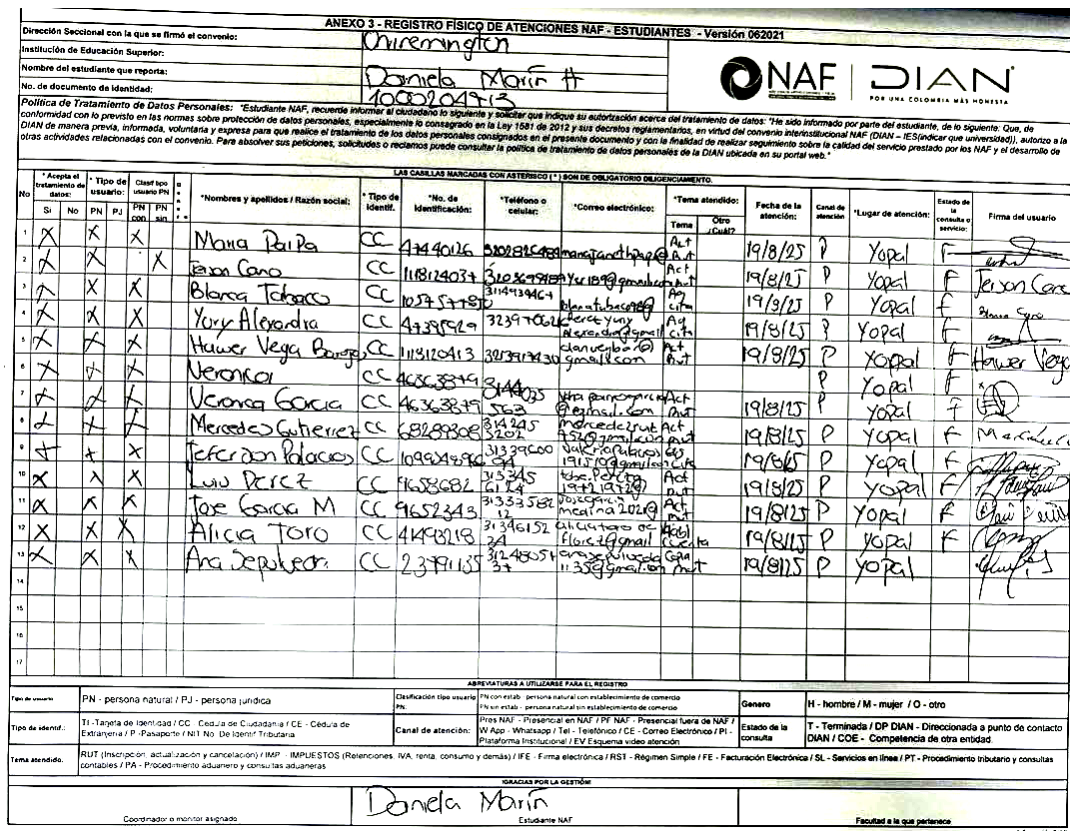 ANEXO 3 - REGISTRO FÍSICO DE ATENCIONES NAF - ESTUDIANTES - Versión 062021
Dirección Seccional con la que se firmó el convenio:
Institución de Educación Superior: Uniremington
Nombre del estudiante que reporta: Daniela Marín H
No. de documento de identidad: 1000204713
NAF DIAN
POR UNA COLOMBIA MÁS HONESTA
Política de Tratamiento de Datos Personales: "Estudiante NAF, recuerde informar al ciudadano lo siguiente y solicitar que indique su autorización acerca del tratamiento de datos: "He sido informado por parte del estudiante, de lo siguiente: Que, de
conformidad con lo previsto en las normas sobre protección de datos personales, especialmente lo consagrado en la Ley 1581 de 2012 y sus decretos reglamentarios, en virtud del convenio interinstitucional NAF (DIAN – IES(indicar que universidad)), autorizo a la
DIAN de manera previa, informada, voluntaria y expresa para que realice el tratamiento de los datos personales consignados en el presente documento y con la finalidad de realizar seguimiento sobre la calidad del servicio prestado por los NAF y el desarrollo de
otras actividades relacionadas con el convenio. Para absolver sus peticiones, solicitudes o reclamos puede consultar la política de tratamiento de datos personales de la DIAN ubicada en su portal web."
LAS CASILLAS MARCADAS CON ASTERISCO ( * ) SON DE OBLIGATORIO DILIGENCIAMIENTO.
No * Acepta el tratamiento de datos: Si No * Tipo de usuario: PN PJ Clasif tipo usuario PN PN con PN sin *Nombres y apellidos / Razón social: * Tipo de Identif. *No. de Identificación: *Teléfono o celular: *Correo electrónico: *Tema atendido: Tema Otro ¿Cuál? Fecha de la atención: Canal de atención *Lugar de atención: Estado de la consulta o servicio: Firma del usuario
1 X X X Maria Paipa CC 47440126 Act Rut 19/8/25 P Yopal F
2 X X X Jeison Cano CC 1118124037 Act 19/8/25 P Yopal F Jerson Cano
3 X X X Blanca Tobaco CC 3114939464 Ag cita 19/8/25 P Yopal F
4 X X X Yury Alexandra CC Ag cita 19/8/25 P Yopal F
5 X X X Hawer Vega CC 1118120413 Act Rut 19/8/25 P Yopal F Hawer Vega
6 X X X Veronica CC 46363849 P Yopal F
7 X X X Veronica Garcia CC 46363849 3144035 563 Act Rut 19/8/25 P Yopal F
8 X X X Mercedes Gutierrez CC 68289308 314245 5202 Act Rut 19/8/25 P Yopal F
9 X X X Jeferson Palacios CC cita 19/8/25 P Yopal F
10 X X X Luis Perez CC 9658682 313345 6124 Act Rut 19/8/25 P Yopal F
11 X X X Jose Garcia M CC 9652343 31333582 12 Act Rut 19/8/25 P Yopal F
12 X X X Alicia Toro CC 41493218 31346152 34 cuenta 19/8/25 P Yopal F
13 X X X Ana Sepulveda CC 23791135 31248054 37 Copia Rut 19/8/25 P Yopal F
14
15
16
17
ABREVIATURAS A UTILIZARSE PARA EL REGISTRO
Tipo de usuario PN - persona natural / PJ - persona jurídica Clasificación tipo usuario PN: PN con estab - persona natural con establecimiento de comercio
PN sin estab - persona natural sin establecimiento de comercio Genero H - hombre / M - mujer / O - otro
Tipo de identif.: TI -Tarjeta de Identidad / CC - Cédula de Ciudadanía / CE - Cédula de Extranjería / P -Pasaporte / NIT No. De Identif Tributaria
Canal de atención: Pres NAF - Presencial en NAF / PF NAF - Presencial fuera de NAF / W App - Whatsapp / Tel - Telefónico / CE - Correo Electrónico / PI - Plataforma Institucional / EV Esquema video atención
Estado de la consulta T - Terminada / DP DIAN - Direccionada a punto de contacto DIAN / COE - Competencia de otra entidad.
Tema atendido. RUT (Inscripción, actualización y cancelación) / IMP - IMPUESTOS (Retenciones, IVA, renta, consumo y demás) / IFE - Firma electrónica / RST - Régimen Simple / FE - Facturación Electrónica / SL - Servicios en línea / PT - Procedimiento tributario y consultas
contables / PA - Procedimiento aduanero y consultas aduaneras
!GRACIAS POR LA GESTIÓN!
Daniela Marín
Coordinador o monitor asignado Estudiante NAF Facultad a la que pertenece